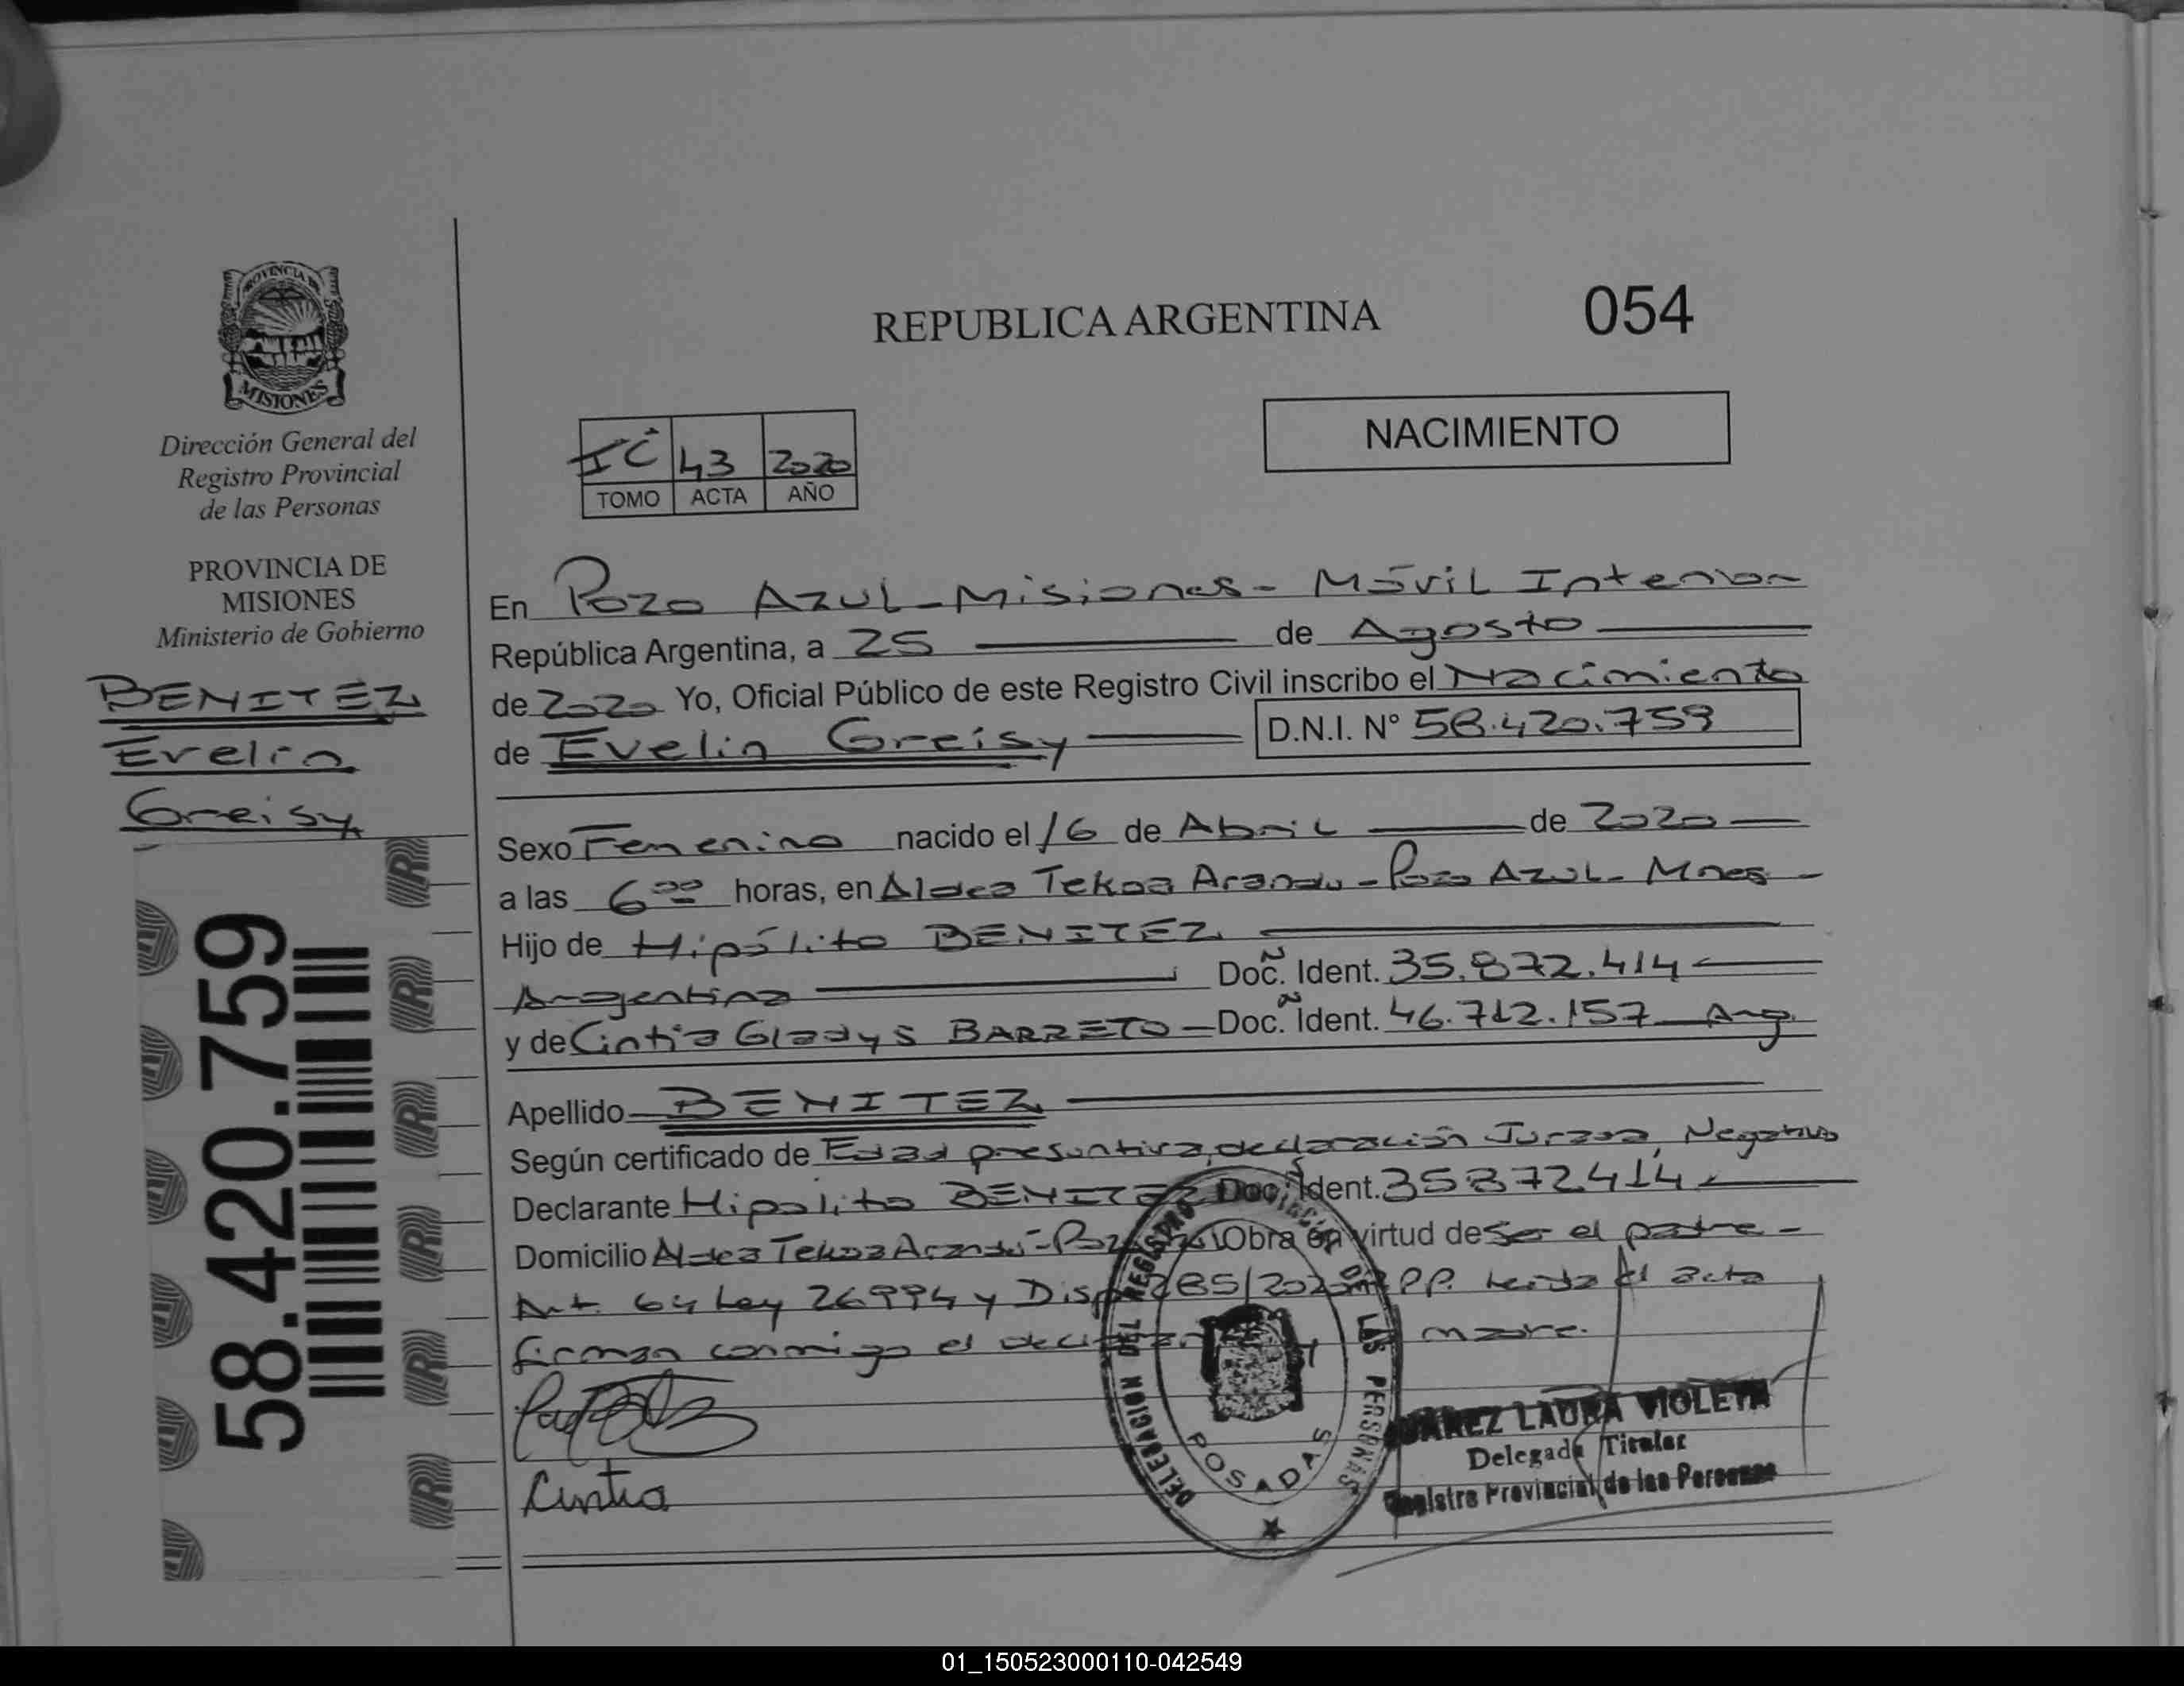 PROVINCIA DE
MISIONES
Dirección General del
Registro Provincial
de las Personas
PROVINCIA DE
MISIONES
Ministerio de Gobierno
BENITEZ
Evelin
Greisy
58.420.759
REPUBLICA ARGENTINA
054
NACIMIENTO
43 2020
TOMO ACTA AÑO
En Pozo AZUL - Misiones - Móvil Interior
República Argentina, a 25 de Agosto
de 2020 Yo, Oficial Público de este Registro Civil inscribo el Nacimiento
de Evelin Greisy D.N.I. N° 58.420.759
Sexo Femenino nacido el 16 de Abril de 2020
a las 6 00 horas, en Aldea Tekoa Arandu - Pozo AZUL - Mnes -
Hijo de Hipólito BENITEZ
Argentina Doc. Ident. 35.872.414
y de Cintia Gladys BARRETO - Doc. Ident. 46.712.157 Arg.
Apellido BENITEZ
Según certificado de Edad presuntiva, declaración Jurada, Negativo
Declarante Hipolito BENITEZ Doc. Ident. 35872414
Domicilio Aldea Tekoa Arandu - Obra en virtud de ser el padre -
Art. 64 Ley 26994 y Disp. RPP. leída el acta
firman conmigo el madre.
Cintia
DELEGACION DEL REGISTRO PROVINCIAL DE LAS PERSONAS
POSADAS
LAURA VIOLETA
Delegada Titular
Registro Provincial de las Personas
01_150523000110-042549